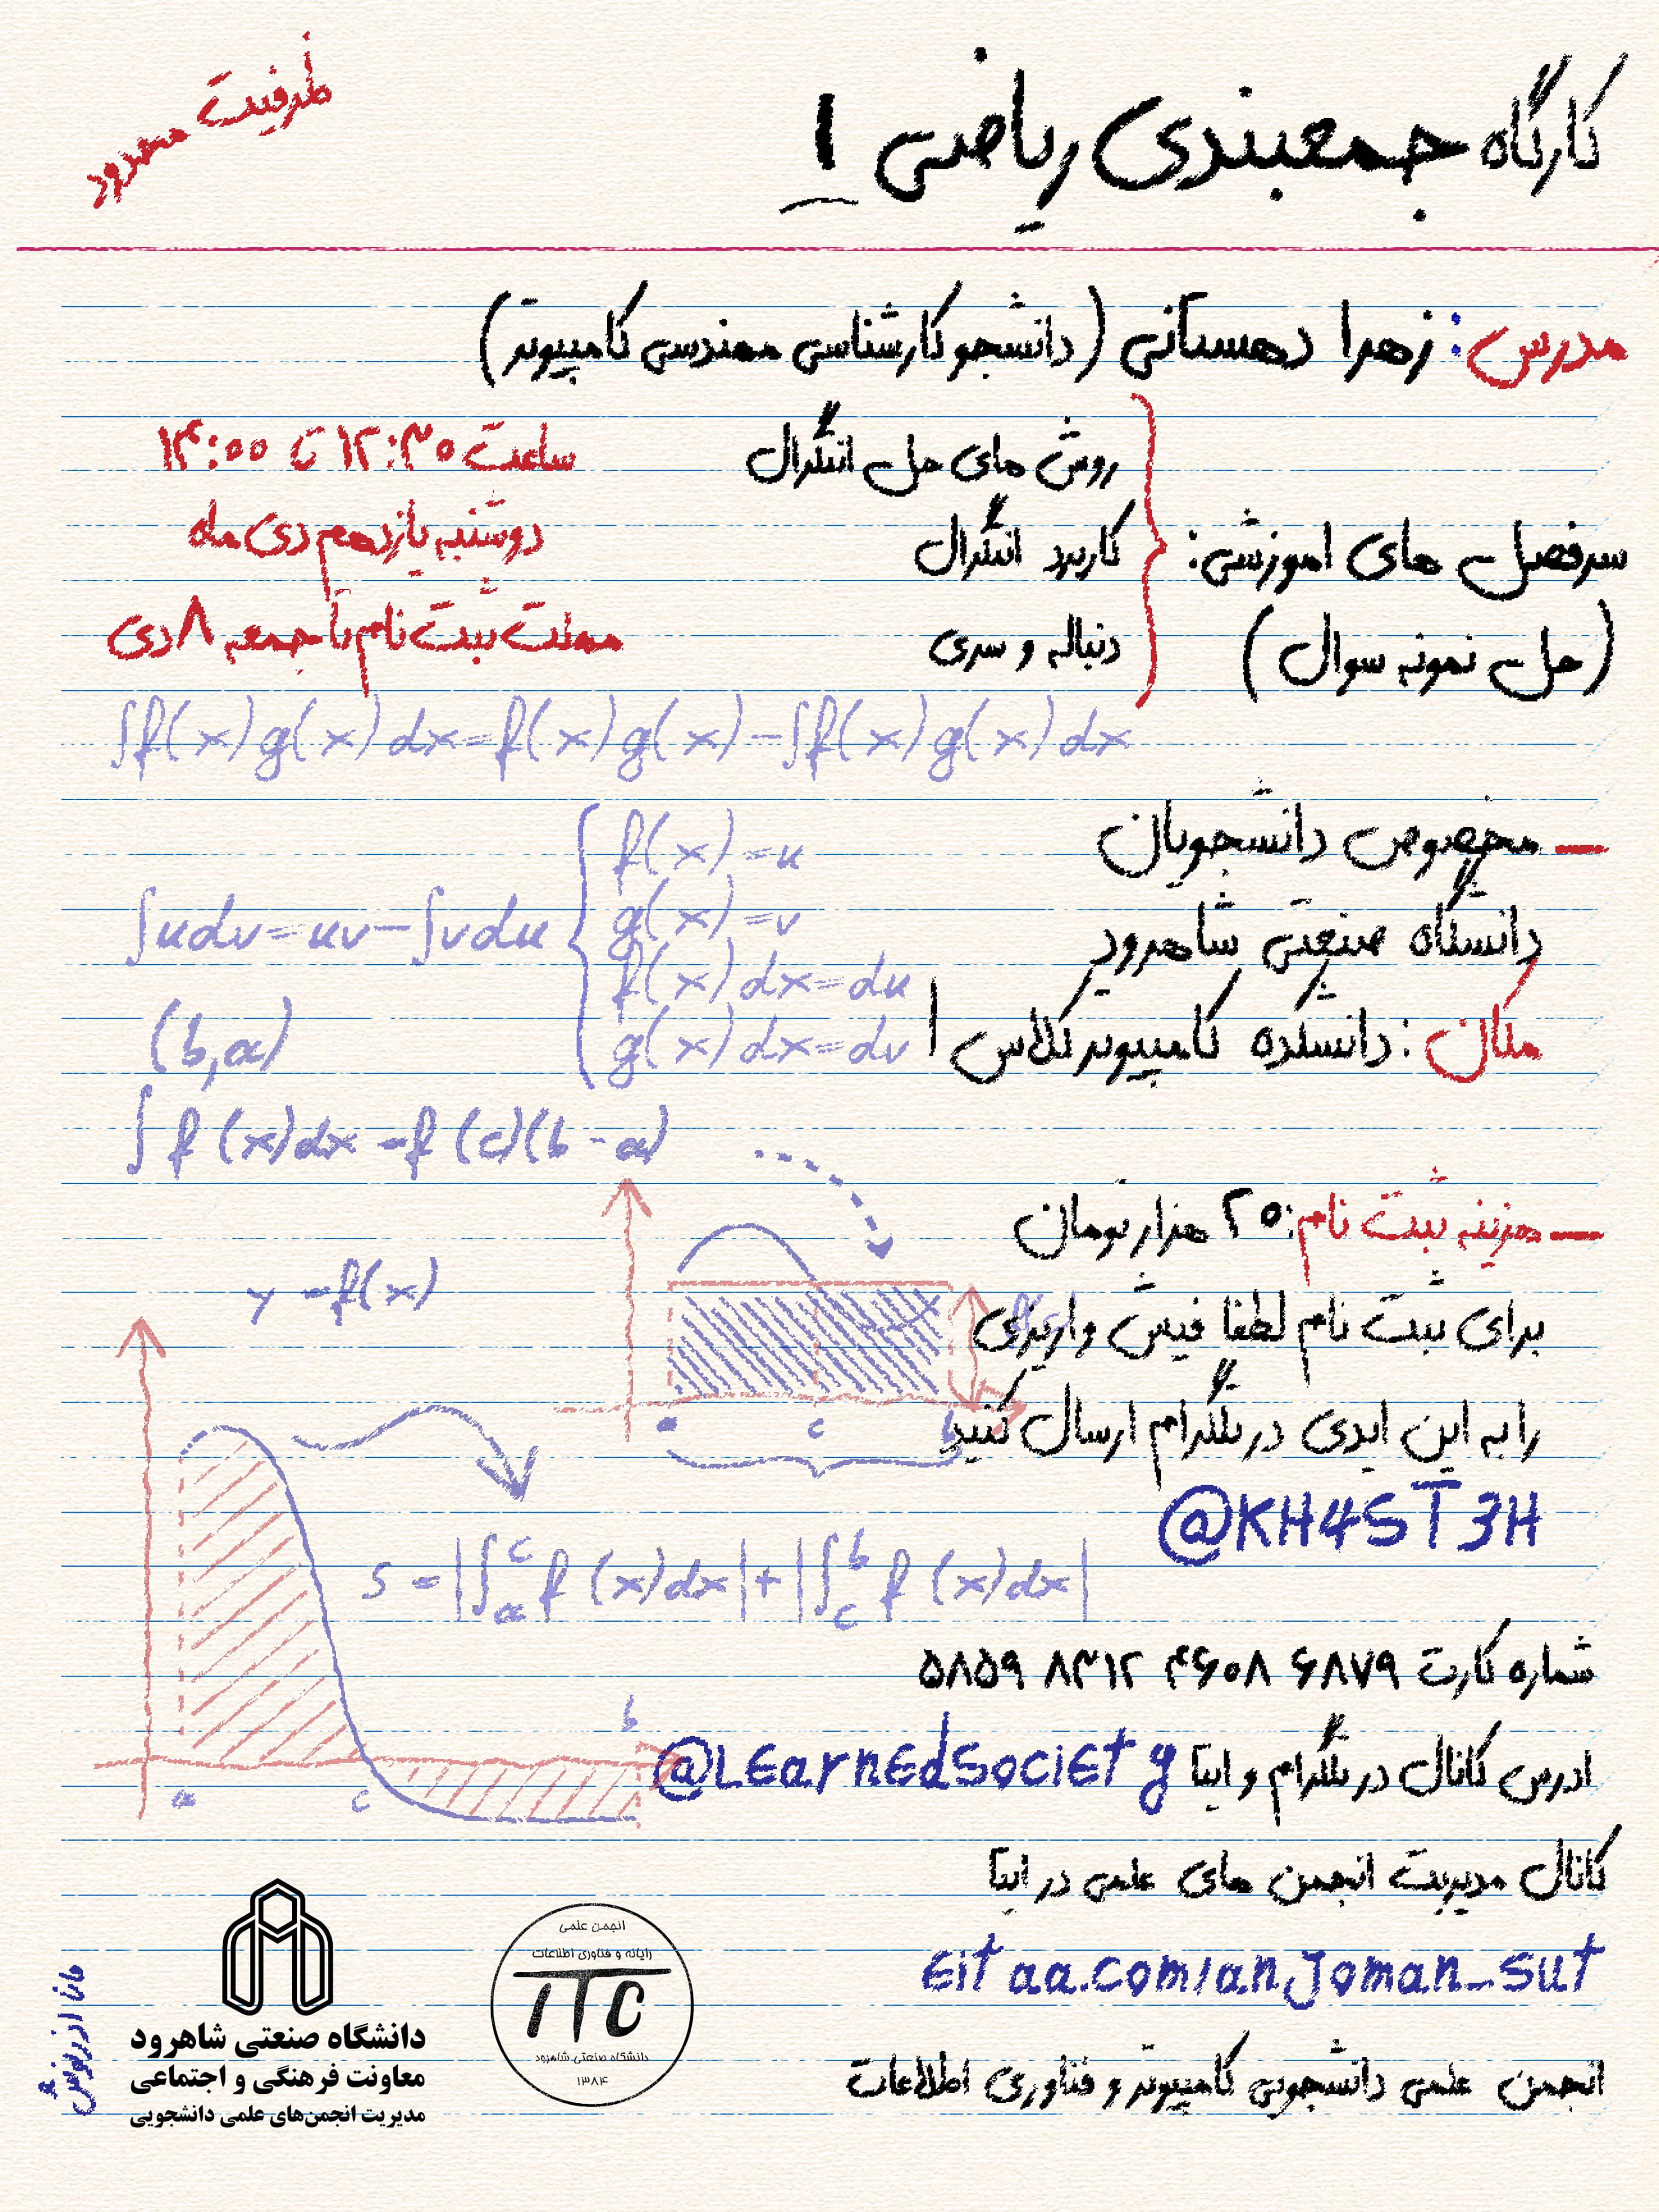 کارگاه جمعبندی ریاضی ۱
ظرفیت محدود
مدرس: زهرا دهستانی (دانشجو کارشناسی مهندسی کامپیوتر)
سرفصل های اموزشی:
(حل نمونه سوال)
روش های حل انتگرال
کاربرد انتگرال
دنباله و سری
ساعت ۱۲:۳۰ تا ۱۴:۰۰
دوشنبه یازدهم دی ماه
مهلت ثبت نام تا جمعه ۸ دی
∫f(x)g(x)dx=f(x)g(x)-∫f(x)g(x)dx
— مخصوص دانشجویان
دانشگاه صنعتی شاهرود
مکان: دانشکده کامپیوتر کلاس ۱
f(x)=u
g(x)=v
f(x)dx=du
g(x)dx=dv
∫udv=uv-∫vdu
(b,a)
∫f(x)dx=f(c)(b-a)
— هزینه ثبت نام: ۲۰ هزار تومان
برای ثبت نام لطفا فیش واریزی
را به این ایدی در تلگرام ارسال کنید
@KH4ST3H
y=f(x)
a c b
S=|∫ₐᶜf(x)dx|+|∫꜀ᵇf(x)dx|
شماره کارت ۶۸۷۹ ۴۶۰۸ ۸۳۱۲ ۵۸۵۹
b
a c
ادرس کانال در تلگرام و ایتا @LEarnEdSociEty
کانال مدیریت انجمن های علمی در ایتا
Eitaa.com/anjoman_sut
انجمن علمی دانشجویی کامپیوتر و فناوری اطلاعات
انجمن علمی
رایانه و فناوری اطلاعات
ITC
دانشگاه صنعتی شاهرود
۱۳۸۴
دانشگاه صنعتی شاهرود
معاونت فرهنگی و اجتماعی
مدیریت انجمن‌های علمی دانشجویی